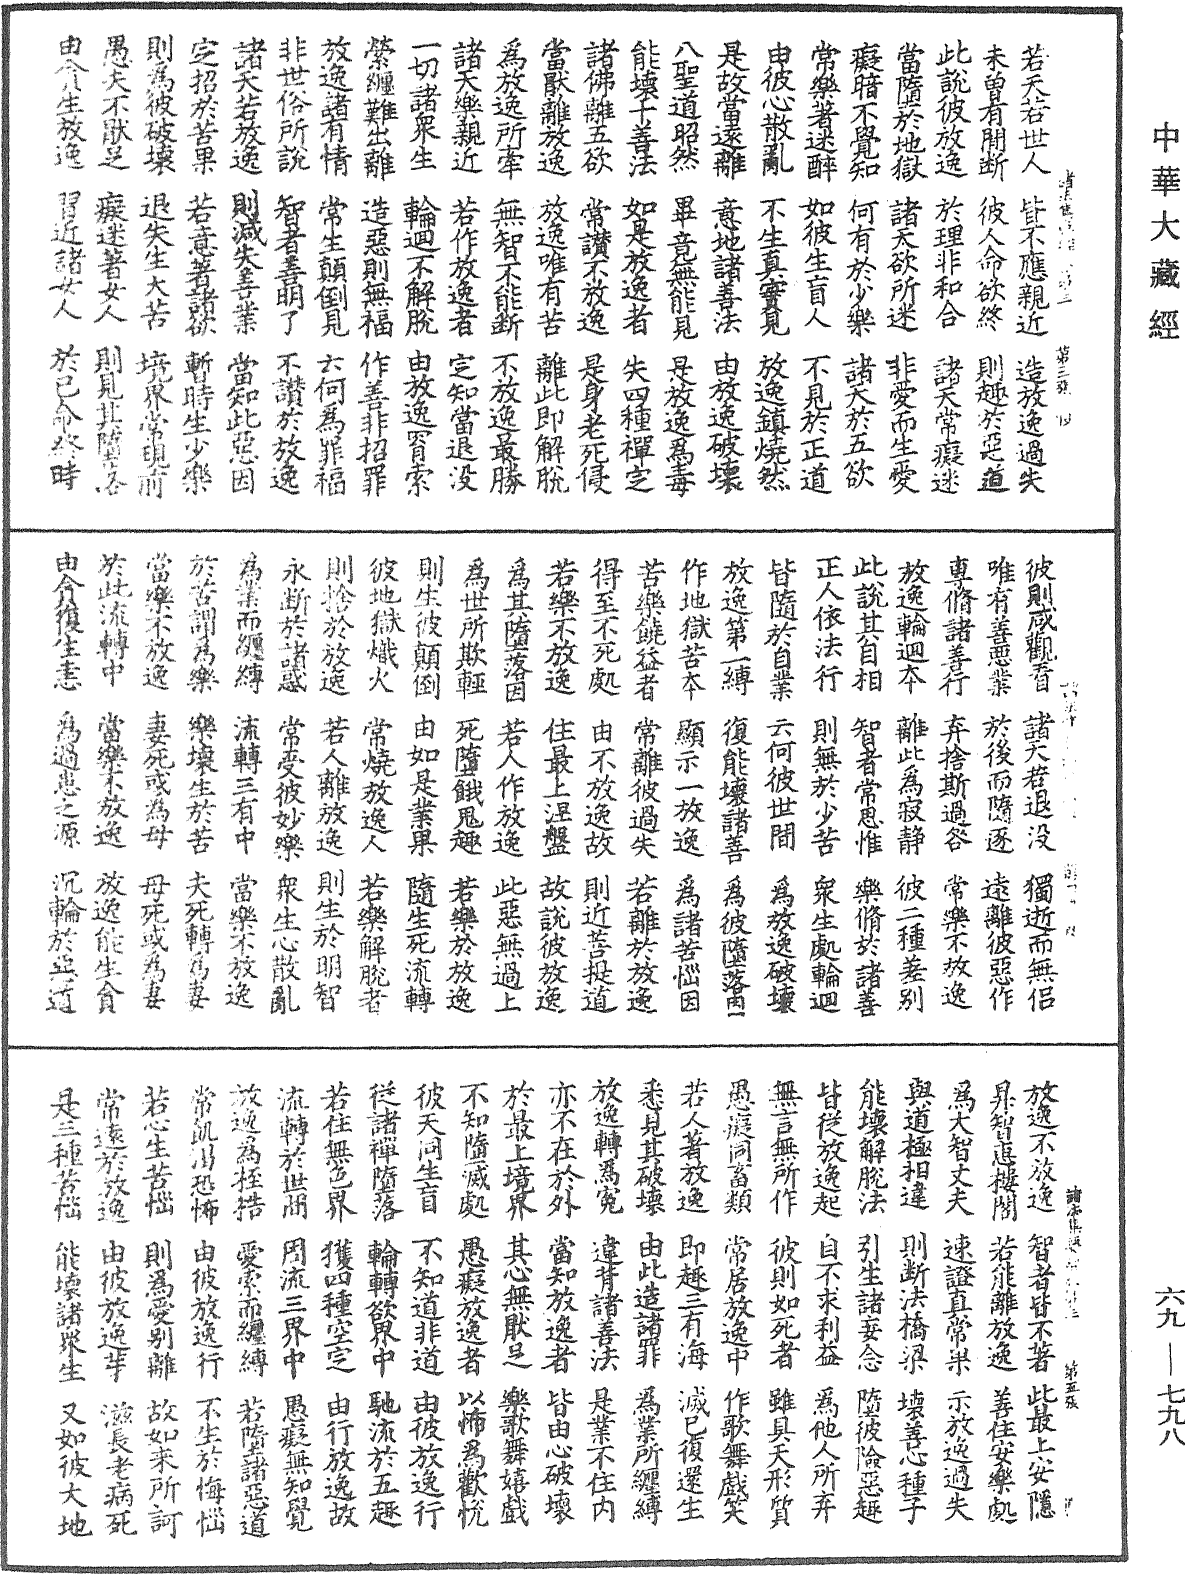 中華大藏經
若天若世人 皆不應親近 造放逸過失
未曽有間断 彼人命欲終 則趣於惡道
此說彼放逸 於理非和合 諸天常癡迷
當墮於地獄 諸天欲所迷 非愛而生愛
癡暗不覺知 何有於少樂 諸天於五欲
常樂著迷醉 如彼生盲人 不見於正道
由彼心散亂 不生真實見 放逸鎮燒然
是故當遠離 意地諸善法 由放逸破壞
八聖道昭然 畢竟無能見 是放逸為毒
能壞十善法 如是放逸者 失四種禪定
諸佛離五欲 常讃不放逸 是身老死侵
當猒離放逸 放逸唯有苦 離此即解脫
為放逸所牽 無智不能斷 不放逸最勝
諸天樂親近 若作放逸者 定知當退没
一切諸衆生 輪迴不解脫 由放逸罥索
縈纏難出離 造惡則無福 作善非招罪
放逸諸有情 常生顛倒見 云何為罪福
非世俗所說 智者善明了 不讃於放逸
諸天若放逸 則減失善業 當知此惡因
定招於苦果 若意著諸欲 暫時生少樂
則為彼破壞 退失生大苦 境界常現前
愚夫不猒足 癡迷著女人 則見其墮落
由貪生放逸 習近諸女人 於已命終時
彼則咸觀看 諸天若退没 獨逝而無侣
唯有善惡業 於後而隨逐 遠離彼惡作
專脩諸善行 弃捨斯過咎 常樂不放逸
放逸輪迴本 離此為寂静 彼二種差别
此說其自相 智者常思惟 樂脩於諸善
正人依法行 則無於少苦 衆生處輪迴
皆隨於自業 云何彼世間 為放逸破壞
放逸第一縛 復能壞諸善 為彼墮落因
作地獄苦本 顯示一放逸 為諸苦惱因
苦樂饒益者 常離彼過失 若離於放逸
得至不死處 由不放逸故 則近菩提道
若樂不放逸 住最上涅盤 故說彼放逸
為其墮落因 若人作放逸 此惡無過上
為世所欺輕 死墮餓鬼趣 若樂於放逸
則生彼顛倒 由如是業果 隨生死流轉
彼地獄熾火 常燒放逸人 若樂解脫者
則捨於放逸 若人離放逸 則生於明智
永斷於諸惑 常受彼妙樂 衆生心散亂
為業而纏縛 流轉三有中 當樂不放逸
於苦謂為樂 樂壞生於苦 夫死轉為妻
當樂不放逸 妻死或為母 母死或為妻
於此流轉中 當樂不放逸 放逸能生貪
由貪復生恚 為過患之源 沉輪於惡道
放逸不放逸 智者皆不著 此最上安隱
昇智惠樓閣 若能離放逸 善住安樂處
為大智丈夫 速證真常果 示放逸過失
與道極相違 則断法橋梁 壞善心種子
能壞解脫法 引生諸妄念 墮彼險惡趣
皆從放逸起 自不求利益 為他人所弃
無言無所作 彼則如死者 雖具天形質
愚癡同畜類 常居放逸中 作歌舞戲笑
若人著放逸 即趣三有海 滅已復還生
悉見其破壞 由此造諸罪 為業所纏縛
放逸轉為冤 違背諸善法 是業不住内
亦不在於外 當知放逸者 皆由心破壞
於最上境界 其心無猒足 樂歌舞嬉戲
不知墮滅處 愚癡放逸者 以怖為歡悅
彼天同生盲 不知道非道 由彼放逸行
從諸禪墮落 輪轉欲界中 馳流於五趣
若住無色界 獲四種空定 由行放逸故
流轉於世間 周流三界中 愚癡無知覺
放逸為桎梏 愛索而纏縛 若墮諸惡道
常飢渴恐怖 由彼放逸行 不生於悔惱
若心生苦惱 則為愛别離 故如来所訶
常遠於放逸 由彼放逸芽 滋長老病死
是三種苦惱 能壞諸衆生 又如彼大地
第三張
第五張
六九—七九八